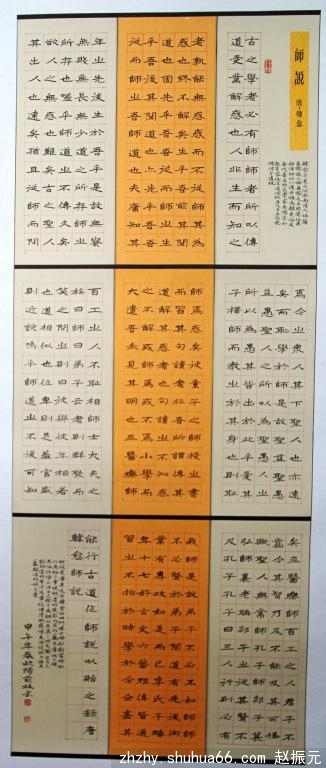 師說
唐·韓愈
古之學者必有師師者所以傳
道受業解惑也人非生而知之
者孰能無惑惑而不從師其爲
惑也終不解矣生乎吾前其聞
道也固先乎吾吾從而師之生
乎吾後其聞道也亦先乎吾吾
從而師之吾師道也夫庸知其
年之先後生於吾乎是故無貴
無賤無長無少道之所存師之
所存也嗟乎師道之不傳久矣
欲人之無惑也難矣古之聖人
其出人也遠矣猶且從師而問
焉今之衆人其下聖人也亦遠
矣而恥學於師是故聖益聖愚
益愚聖人之所以爲聖愚人之
所以爲愚其皆出於此乎愛其
子擇師而教之於其身也則恥
師焉惑矣彼童子之師授之書
而習其句讀者非所謂傳其道
解其惑者也句讀之不知惑
之不解或師焉或不焉小學而
大遺吾未見其明也巫醫樂師
百工之人不恥相師士大夫之
族曰師曰弟子云者則群聚而
笑之問之則曰彼與彼年相若
也道相似也位卑則足羞官盛
則近諛嗚乎師道之不復可知
矣巫醫樂師百工之人君子不
齒今其智乃反不能及其可怪
也歟聖人無常師孔子師郯子萇
弘師襄老聃郯子之徒其賢不
及孔子孔子曰三人行則必有
我師是故弟子不必不如師師
不必賢於弟子聞道有先後術
業有專攻如是而已李氏子蟠
年十七好古文六藝經傳皆通
習之不拘於時學於余余嘉其
能行古道作師說以貽之錄唐
韓愈師說
甲午年春歐陽
zhzhy.shuhua66.com 赵振元